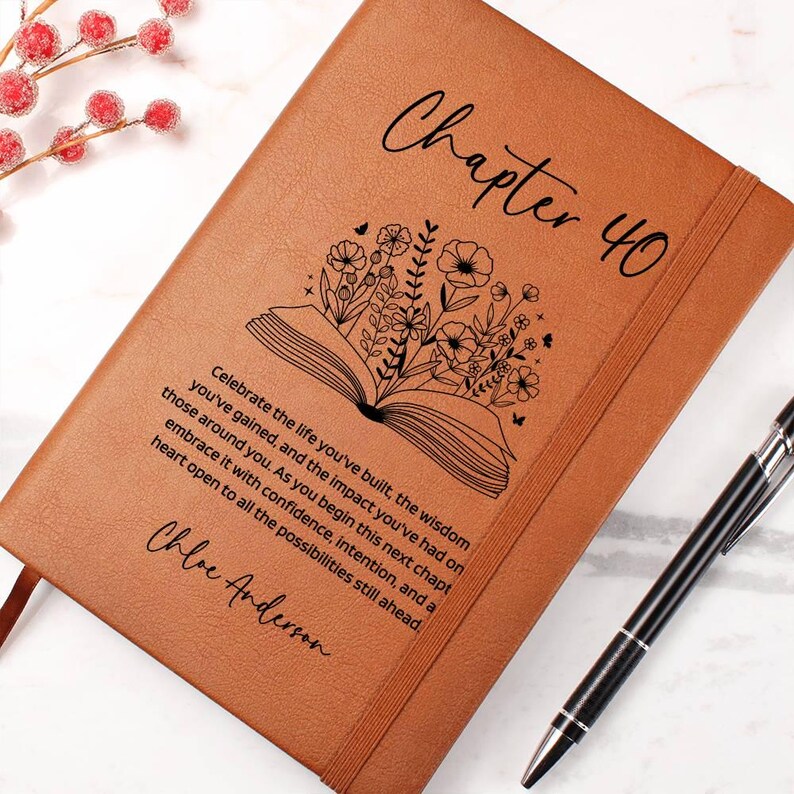 Chapter 40
Celebrate the life you've built, the wisdom
you've gained, and the impact you've had on
those around you. As you begin this next chapt
embrace it with confidence, intention, and a
heart open to all the possibilities still ahead.
Chloe Anderson